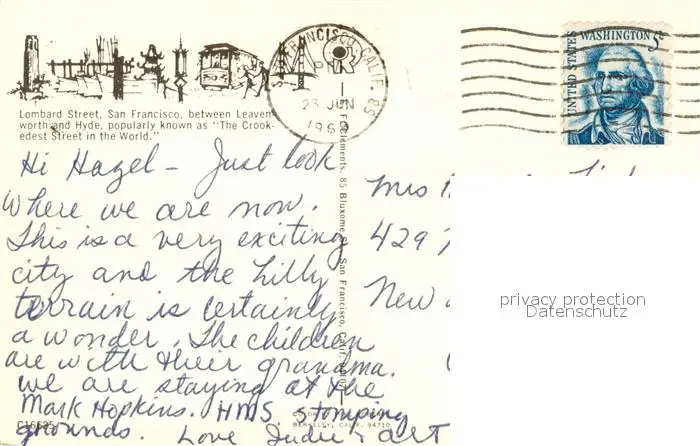 Lombard Street, San Francisco, between Leaven-
worth and Hyde, popularly known as "The Crook-
edest Street in the World."
Hi Hazel - Just look
where we are now.
This is a very exciting
city and the hilly
terrain is certainly
a wonder. The children
are with their grandma.
we are staying at the
Mark Hopkins. HMS stomping
grounds. Love Judie & Art
C16625
85 Bluxome St., San Francisco, Calif.
BERKELEY, CALIF. 94710
SAN FRANCISCO, CALIF.
PM
23 JUN
UNITED STATES
WASHINGTON 5¢
Mrs
429
New
privacy protection
Datenschutz